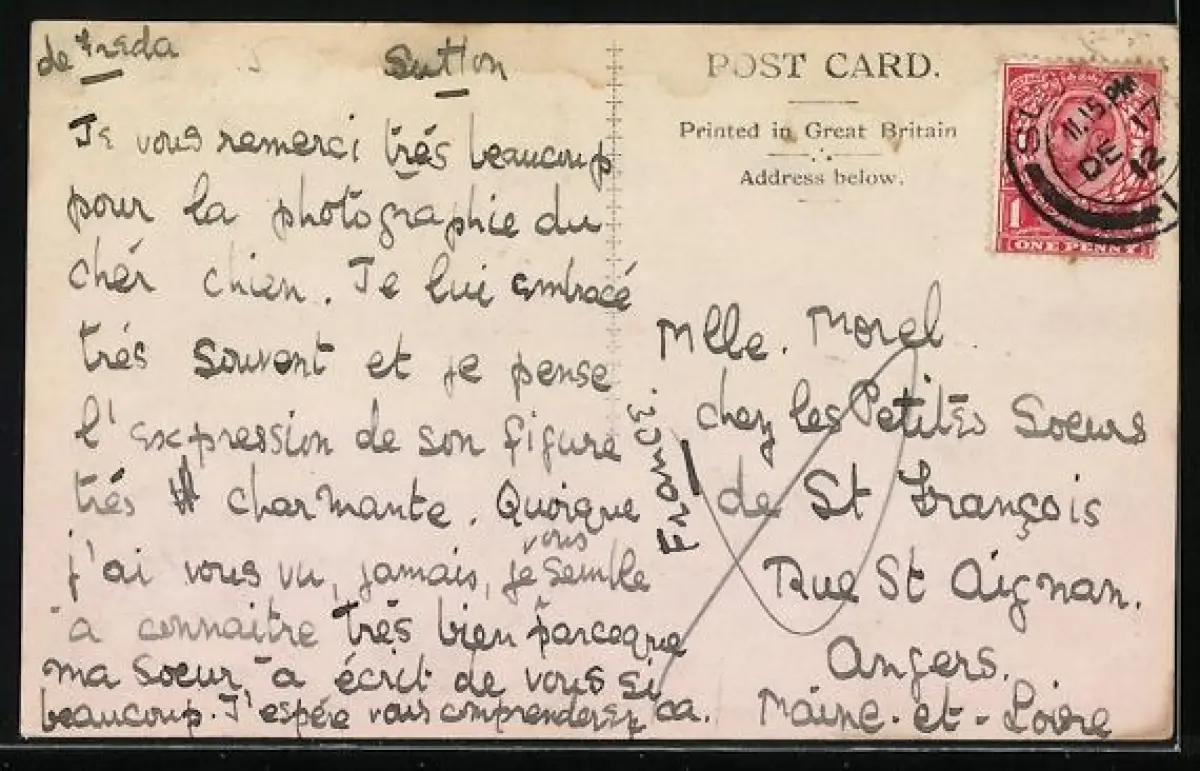 de Freda
Sutton
Je vous remerci très beaucoup
pour la photographie du
chér chien. Je lui embracé
trés souvent et je pense
l'expression de son figure
trés charmante. Quoique
vous
j'ai vous vu, jamais, je semble
à connaitre très bien parceque
ma soeur à écrit de vous si
beaucoup. J'espére vous comprenderez ca.
POST CARD.
Printed in Great Britain
Address below.
11.15 PM
DE 17
12
1
ONE PENNY
Mlle. Morel
chez les Petites Soeurs
de St François
Rue St Aignan.
Angers.
Maine-et-Loire
France.